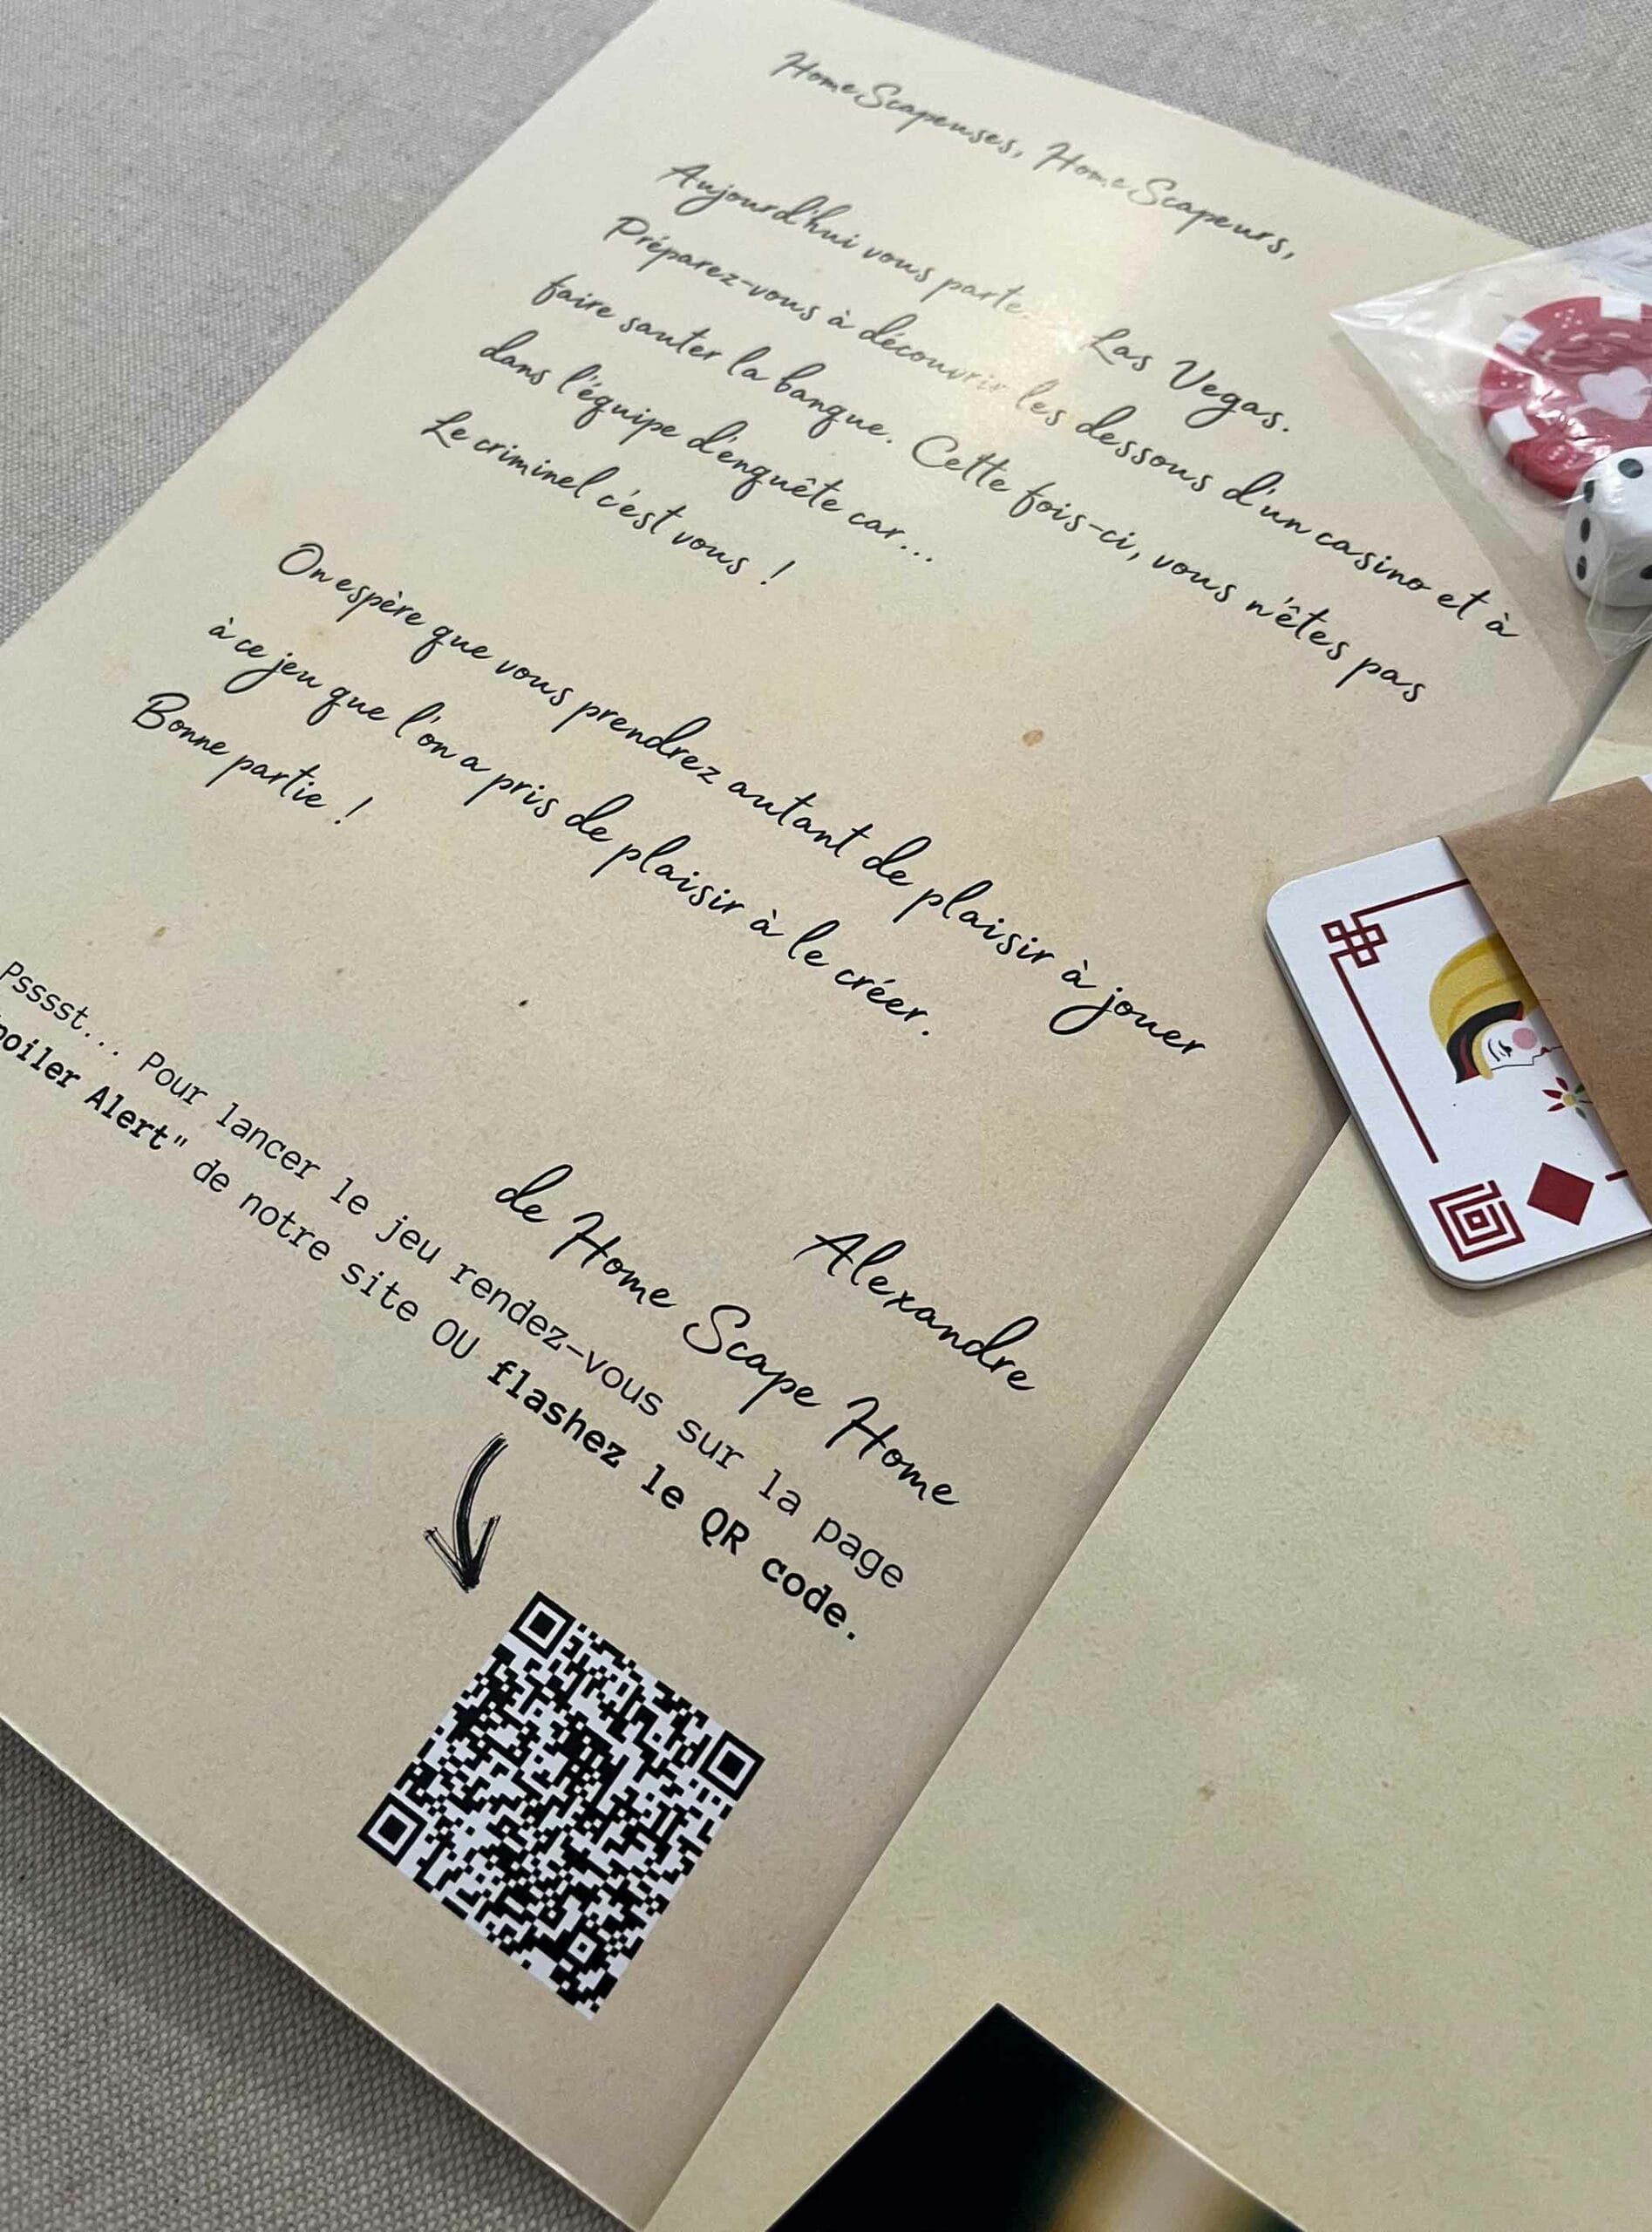 HomeScapeuses, HomeScapeurs,
Aujourd'hui vous Las Vegas.
Préparez-vous à découvrir les dessous d'un casino et à
faire sauter la banque. Cette fois-ci, vous n'êtes pas
dans l'équipe d'enquête car...
Le criminel c'est vous !
On espère que vous prendrez autant de plaisir à jouer
à ce jeu que l'on a pris de plaisir à le créer.
Bonne partie !
Alexandre
de Home Scape Home
Psssst... Pour lancer le jeu rendez-vous sur la page
poiler Alert" de notre site OU flashez le QR code.